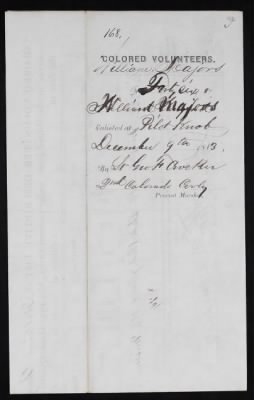 168.
COLORED VOLUNTEERS.
William Majors
Forty six
William Majors
Enlisted at Pilot Knob
December 9th 1863.
By Lt Geo F
2nd Colorado Cavly
Provost Marshal